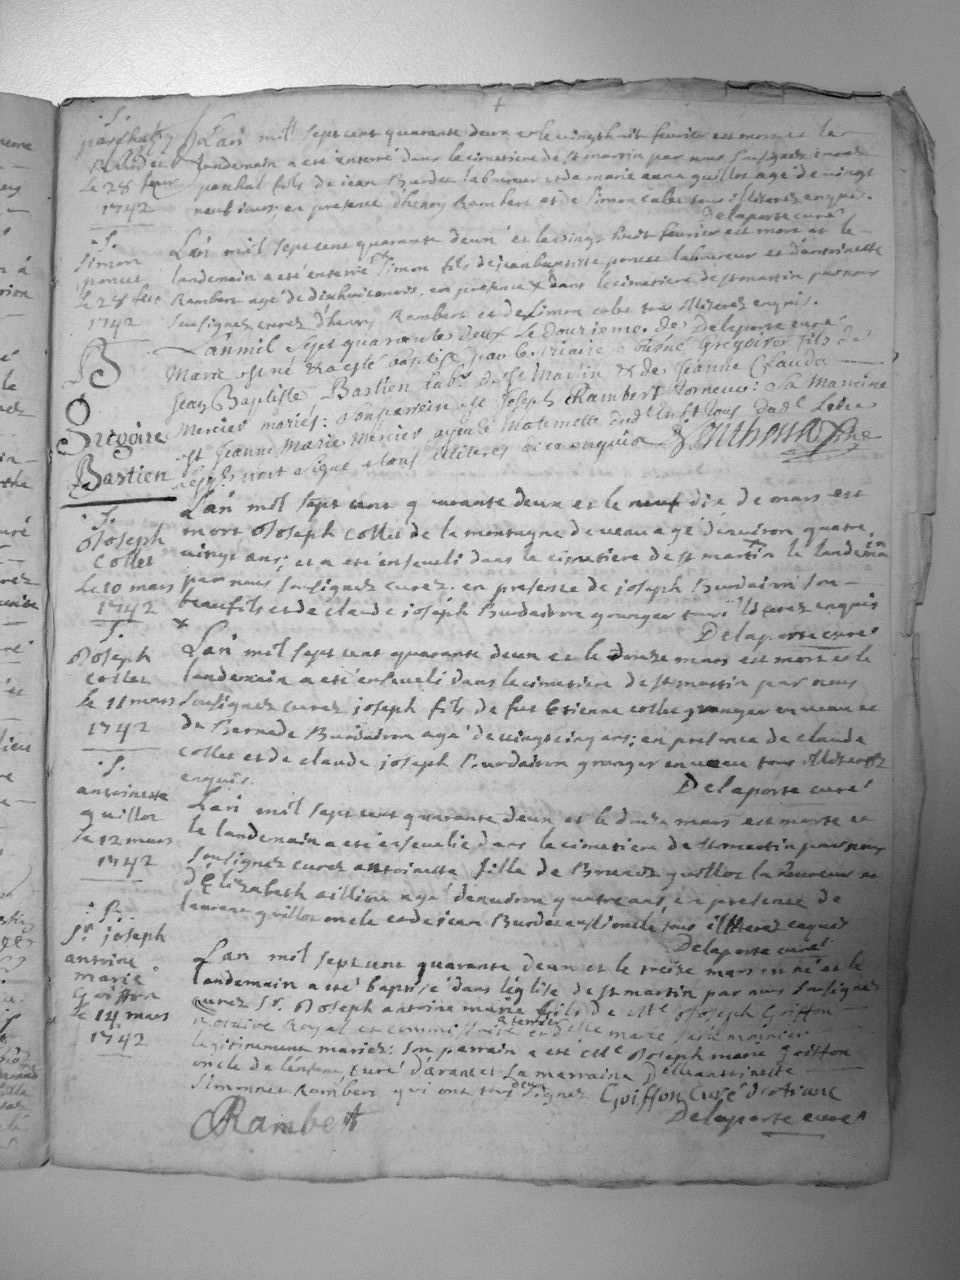 S.
paschal
Burdet
Le 28 fevr
1742
L'an mil sept cent quarante deux et le vingt huit fevrier est mort et le
landemain a eté enterré dans le cimetiere de st martin par nous soussignez curez
paschal fils de jean Burdet laboureur et de marie anne guillot agé de vingt
neuf jours, en presence d'henry Rambert et de simon colet tous illiterez enquis.
Delaporte curé
S.
simon
poncet
le 28 fevr
1742
L'an mil sept cent quarante deux et le vingt huit fevrier est mort et le
landemain a eté enterré simon fils de jean baptiste poncet laboureur et d'antoinette
Rambert agé de dixhuit mois, en presence dans le cimetiere de st martin par nous
soussignez curez d'henry Rambert et de simon colet tous illiterez enquis.
Delaporte curé
B
Gregoire
Bastien
L'an mil sept quarante deux Le douzieme de
Mars est né et a esté baptisé par le vicaire Gregoire fils de
Jean Baptiste Bastien lab. de St Martin & de Jeanne Clauda
Mercier mariés: son parrain est Joseph Rambert Torneur: sa Marraine
est Jeanne Marie Mercier
S.
Joseph
Collet
Le 10 mars
1742
L'an mil sept cent quarante deux et le dix de mars est
mort Joseph Collet de la montagne de veau agé d'environ quatre
vingt ans, et a eté enseveli dans le cimetiere de st martin le landemain
par nous soussignez curez, en presence de joseph Burdairon son
beaufils et de claude joseph Burdairon granger tous illiterez enquis
Delaporte curé
S.
Joseph
collet
le 11 mars
1742
L'an mil sept cent quarante deux et le douze mars est mort et le
landemain a eté enseveli dans le cimetiere de st martin par nous
soussignez curez joseph fils de fut Etienne collet granger en veau et
de Bernade Burdairon agé de vingt cinq ans; en presence de claude
collet et de claude joseph Burdairon granger en veau tous illiterez
enquis.
Delaporte curé
S.
antoinette
guillot
Le 12 mars
1742
L'an mil sept cent quarante deux et le douze mars est morte et
le landemain a eté ensevelie dans le cimetiere de st martin par nous
soussignez curez antoinette fille de Benoit guillot laboureur et
d'Elizabeth agé d'environ quatre ans, en presence de
laurent guillot oncle et de jean Burdet aussi oncle tous illiterez enquis
Delaporte curé
Sr. joseph
antoine
marie
Goiffon
le 14 mars
1742
L'an mil sept cent quarante deux et le treize mars est né et le
landemain a eté baptisé dans l'église de st martin par nous soussignez
curez Sr. Joseph antoine marie fils de Me Joseph Goiffon
Notaire Royal et commissaire a terrier et de
legitimement mariez: son parrain a eté Me Joseph marie Goiffon
oncle de l'enfant, curé d'arant et La marraine Delle antoinette
simonnet Rambert qui ont tous deux signez
Goiffon Curé d'arant
Rambert
Delaporte curé